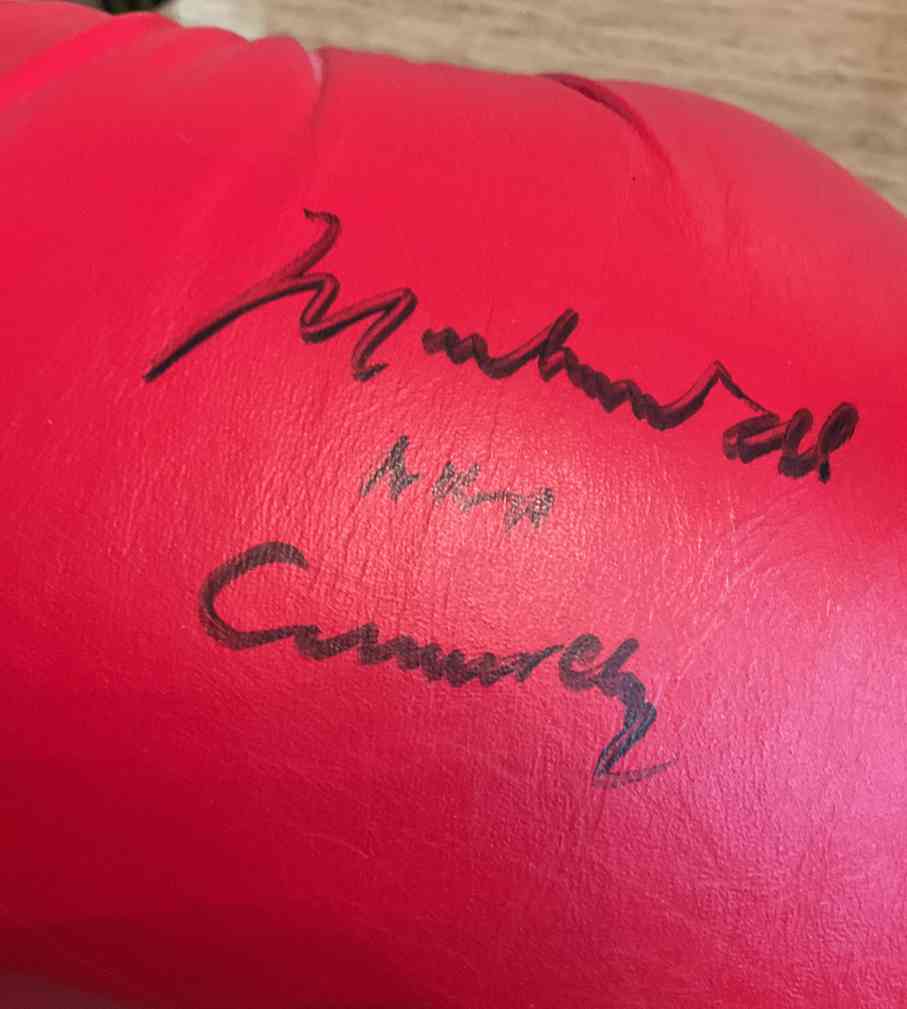 Muhammad Ali
Cassius Clay